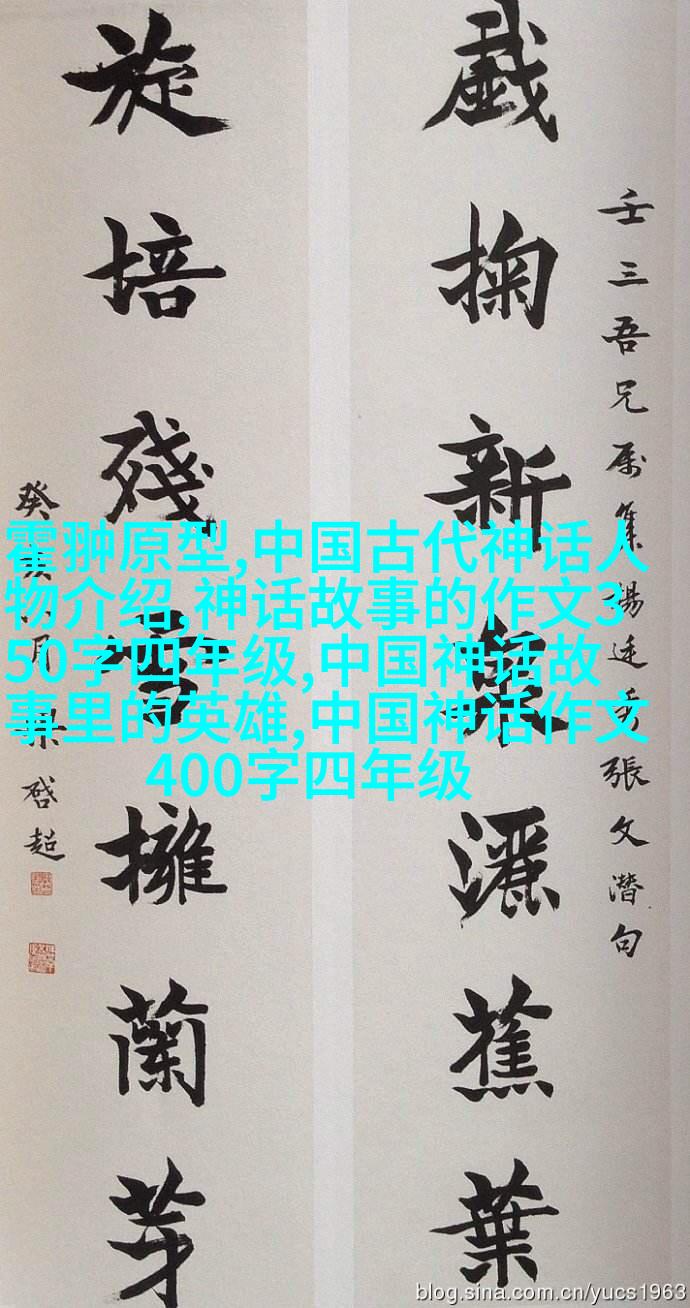 壬三吾兄属集楊廷秀張文潛句
戲掬新泉灑蕉葉
旋培殘雪擁蘭芽
癸亥月梁啓超
霍翀原型,中国古代神话人
物介绍,神话故事的作文3
50字四年级,中国神话故
事里的英雄,中国神话作文
400字四年级
blog.sina.com.cn/yucs1963